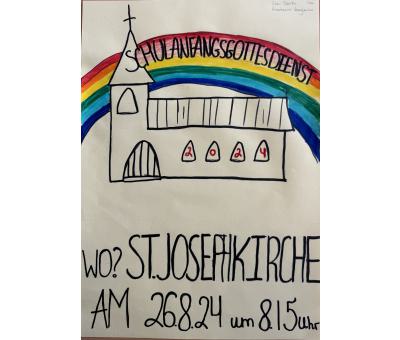 SCHULANFANGSGOTTESDIENST
2024
WO? ST.JOSEPHKIRCHE
AM 26.8.24 um 8.15 Uhr